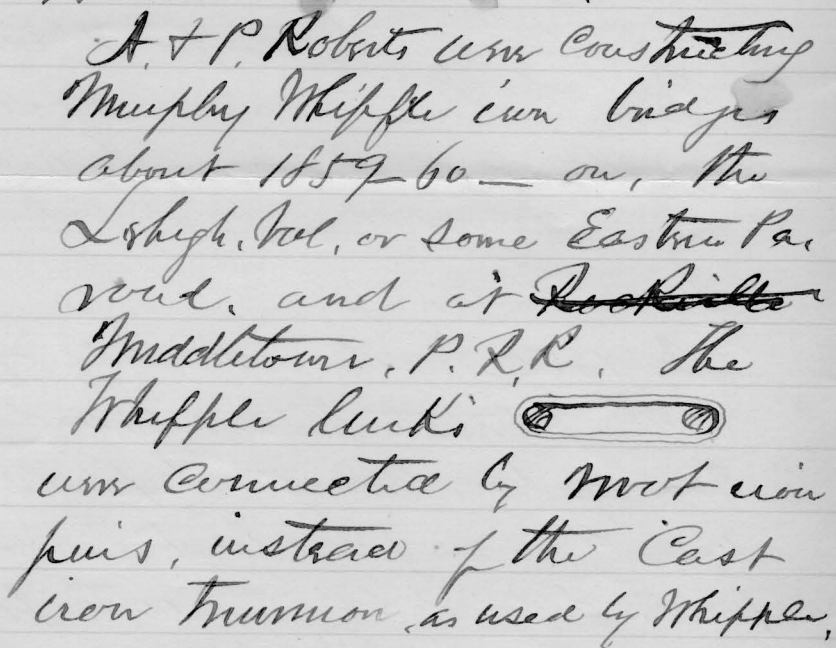 A. & P. Roberts were constructing
Murphy Whipple iron bridges
about 1859-60 — on, the
Lehigh. Val. or some Eastern Pa.
road. and at Rockville
Middletown, P.R.R. The
Whipple links
were connected by wrot iron
pins, instead of the Cast
iron trunnion, as used by Whipple,